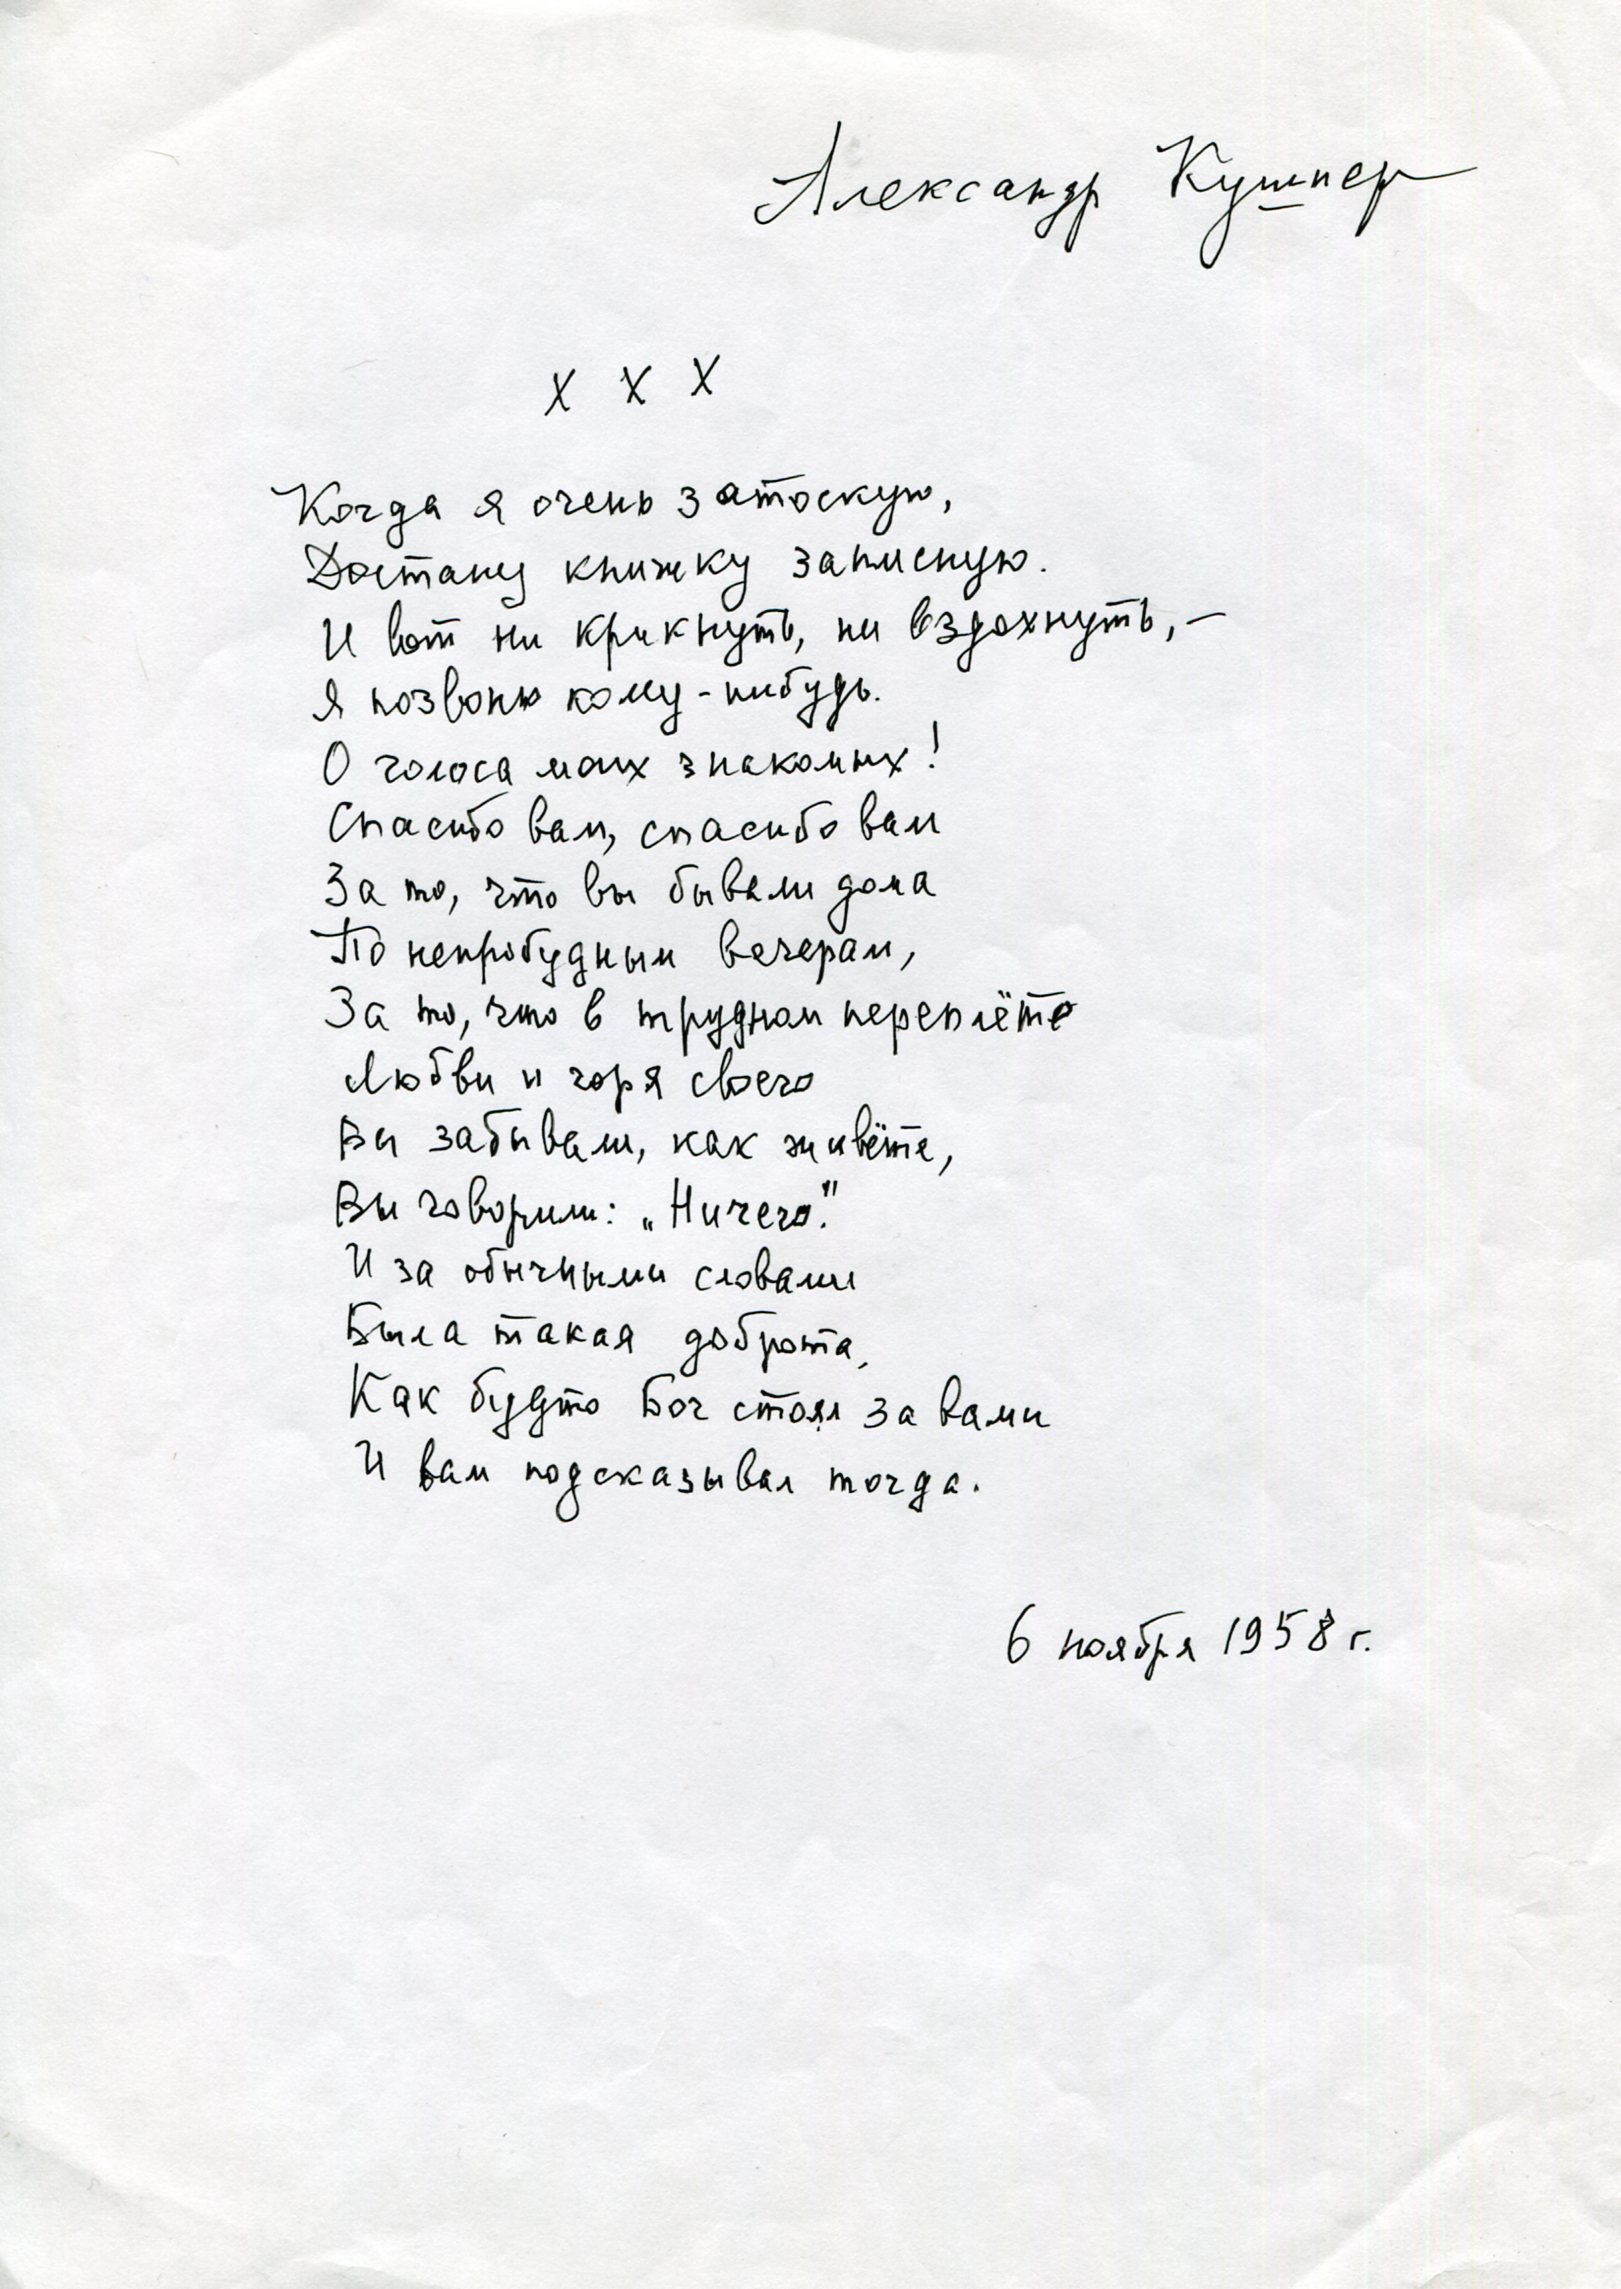 Александр Кушнер
х х х
Когда я очень затоскую,
Достану книжку записную.
И вот ни крикнуть, ни вздохнуть, –
Я позвоню кому-нибудь.
О голоса моих знакомых!
Спасибо вам, спасибо вам
За то, что вы бывали дома
По непробудным вечерам,
За то, что в трудном переплёте
Любви и горя своего
Вы забывали, как живёте,
Вы говорили: „Ничего."
И за обычными словами
Была такая доброта,
Как будто Бог стоял за вами
И вам подсказывал тогда.
6 ноября 1958 г.